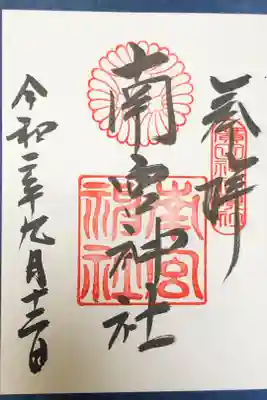 奉拝
南宮神社
南宮
神社
令和二年九月十二日